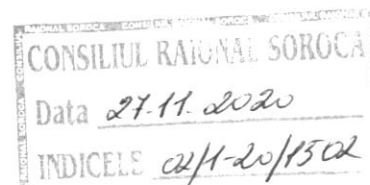 CONSILIUL RAIONAL SOROCA
Data 27.11.2020
INDICELE 02/1-20/1502